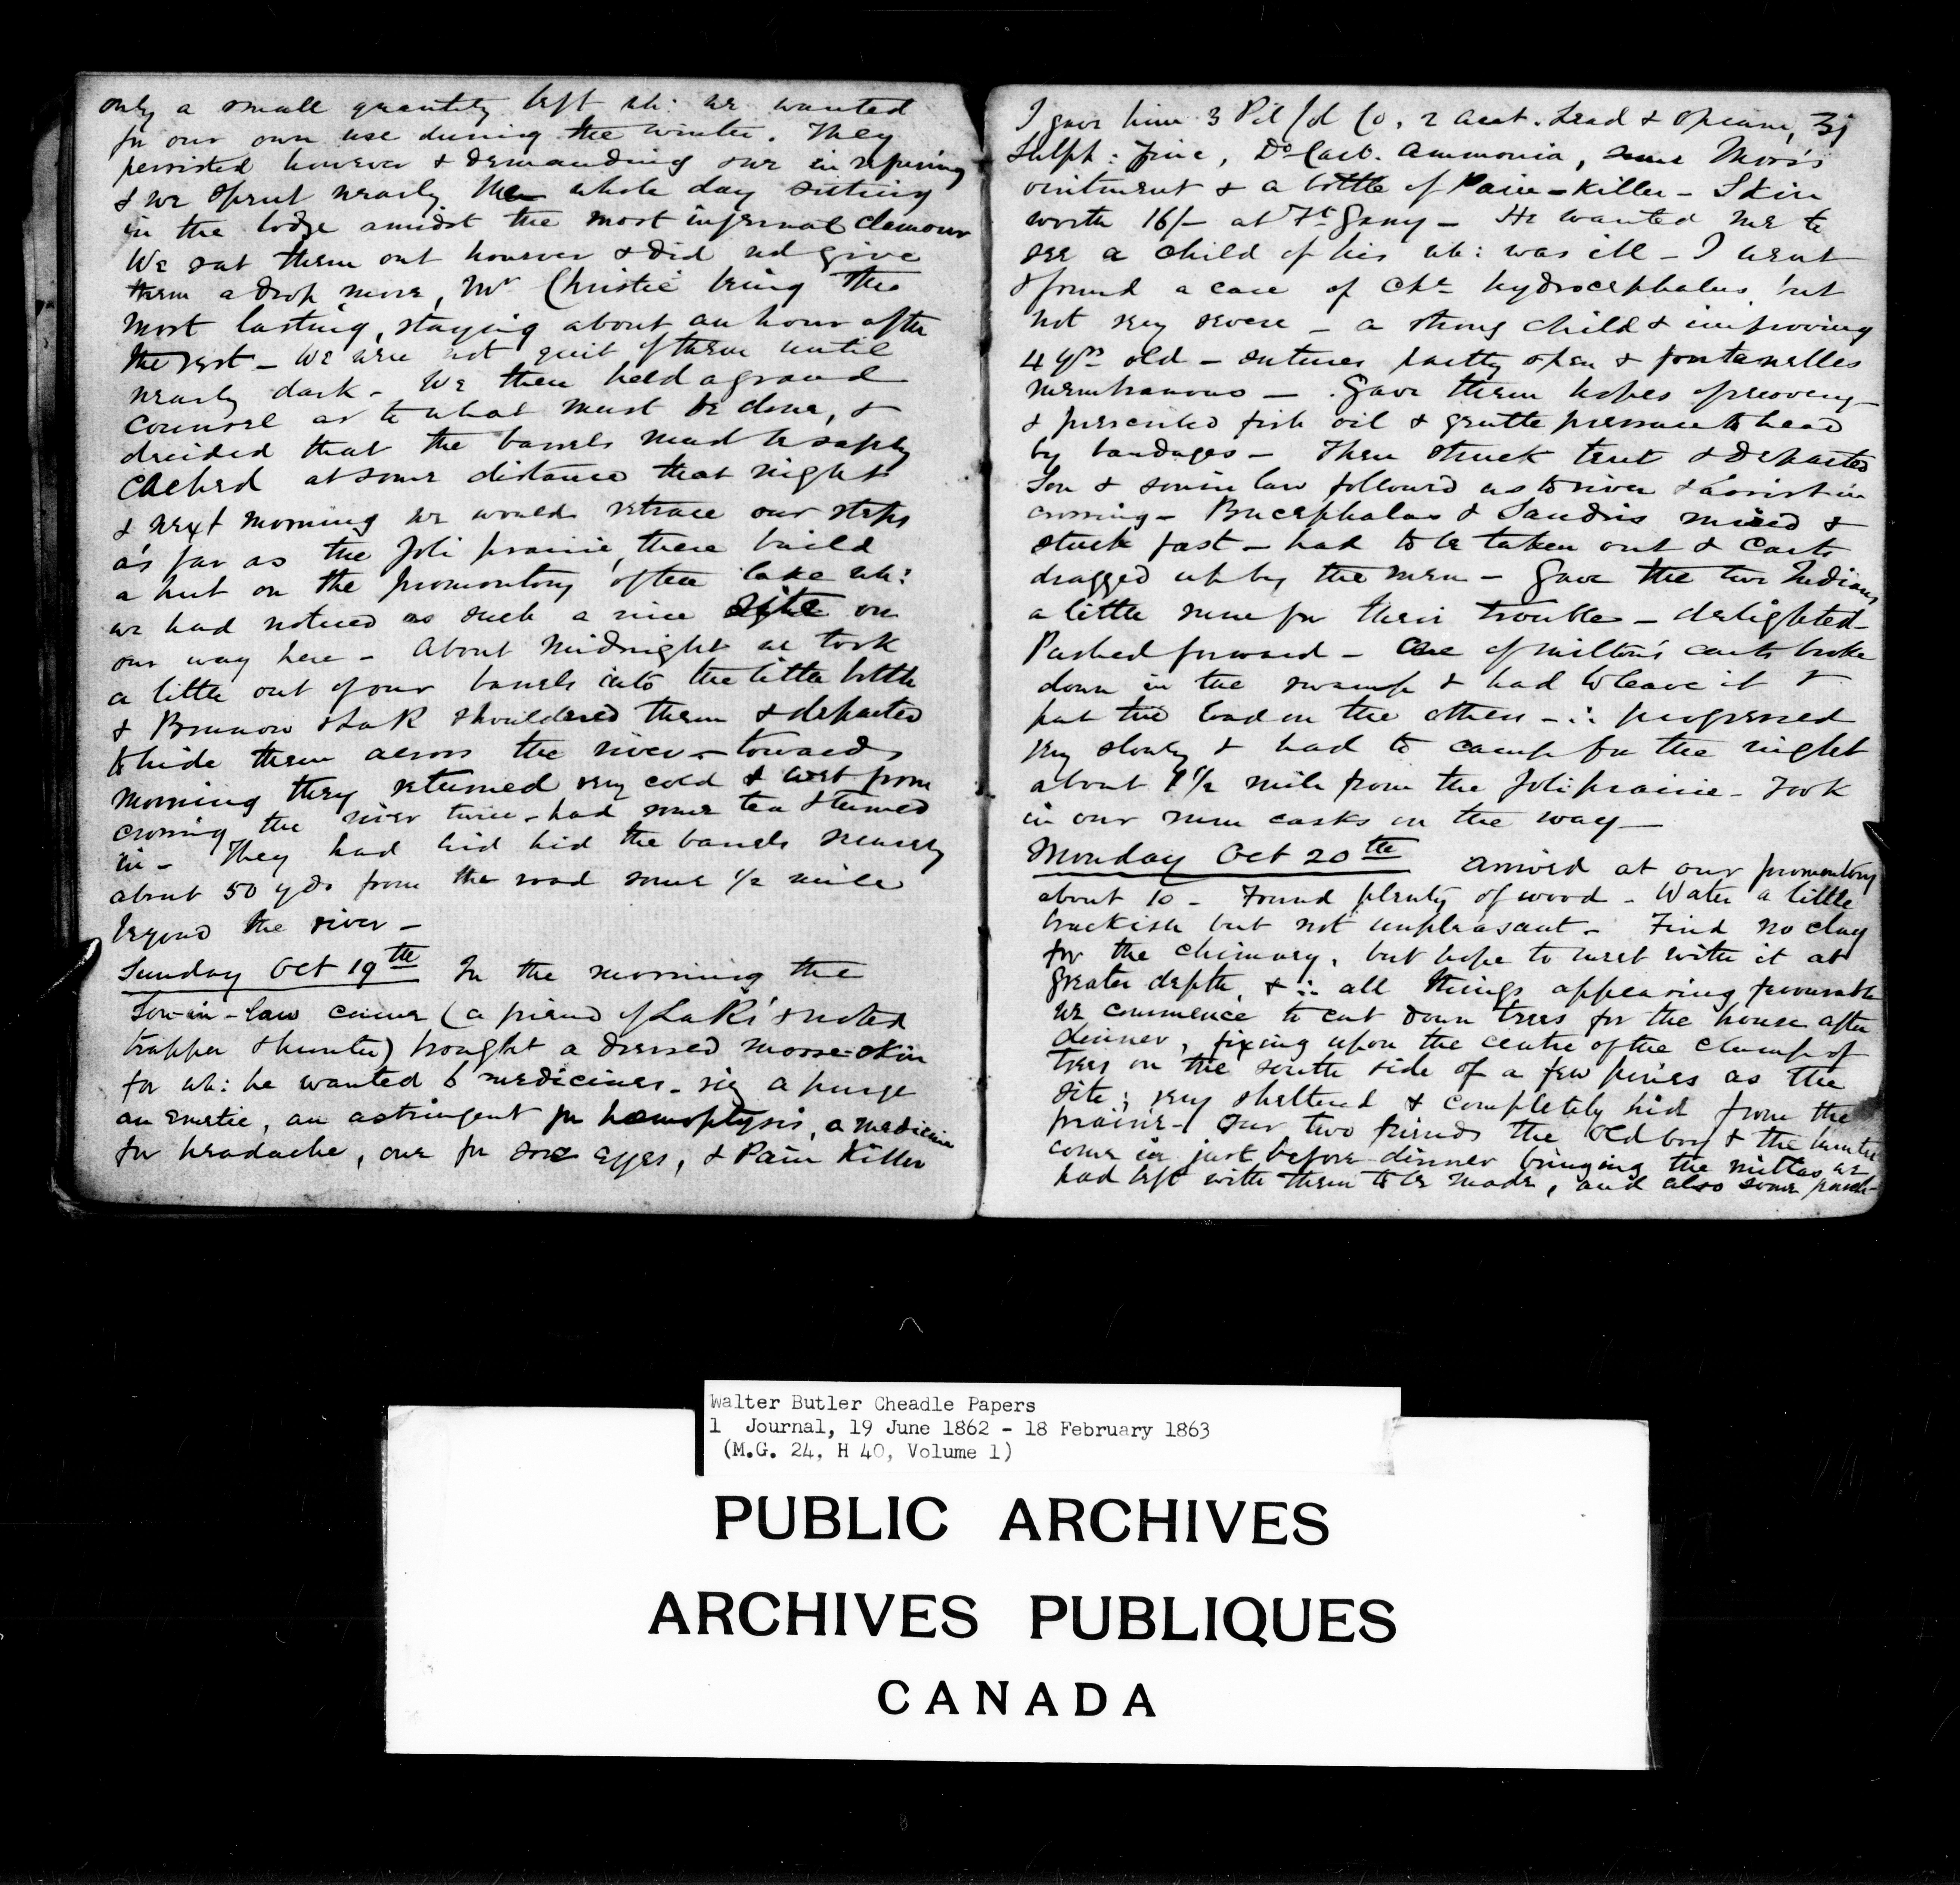 only a small quantity left wh: we wanted
for our own use during the winter. They
persisted however & demanding & we in refusing
& we spent nearly the whole day sitting
in the lodge amidst the most infernal clamour
We sat them out however & did not give
them a drop more, Mr Christie being the
most lasting, staying about an hour after
the rest - We were not quit of them until
nearly dark - We then held a grand
counsel as to what must be done, &
decided that the barrels must be safely
cached at some distance that night
& next morning we would retrace our steps
as far as the Joli prairie, there build
a hut on the promontory of the lake wh:
we had noticed as such a nice site on
our way here - About midnight we took
a little out of our barrels into the little bottle
& Bruneau & LaR shouldered them & departed
to hide them across the river - towards
morning they returned very cold & wet from
crossing the river twice - had some tea & turned
in - They had hid hid the barrels securely
about 50 yds from the road some 1/2 mile
beyond the river -
Sunday Oct 19th In the morning the
Son-in-law came (a friend of LaR's & noted
trapper & hunter) brought a dressed moose-skin
for wh: he wanted 6 medicines - viz a purge
an emetic, an astringent for hæmoptysis, a medicine
for headache, one for sore eyes, & Pain Killer
I gave him 3 Pil Col Co, 2 Acet. Lead & Opium, ʒj
Sulph: Zinc, Do Carb. Ammonia, some
ointment & a bottle of Pain-Killer - Skin
worth 16/- at Ft Garry - He wanted me to
see a child of his wh: was ill - I went
& found a case of Chc hydrocephalus but
not very severe - a strong child & improving
4 yrs old - sutures partly open & fontanelles
membranous - Gave them hopes of recovery -
& prescribed fish oil & gentle pressure to head
by bandages - Then struck tent & departed
Son & son in law followed us to river & assist in
crossing - Bucephalus & Sandris mired &
stuck fast - had to be taken out & carts
dragged up by the men - Gave the two Indians
a little rum for their trouble - delighted -
Pushed forward - One of Milton's carts broke
down in the swamp & had to leave it &
put the load on the others - ∴ progressed
very slowly & had to camp for the night
about 1 1/2 mile from the Joli prairie - Took
in our rum casks on the way -
Monday Oct 20th Arrived at our promontory
about 10 - Found plenty of wood - Water a little
brackish but not unpleasant - Find no clay
for the chimney, but hope to meet with it at
greater depth, & ∴ all things appearing favourable
we commence to cut down trees for the house after
dinner, fixing upon the centre of the clump of
trees on the south side of a few pines as the
site; very sheltered & completely hid from the
prairie - Our two friends the old boy & the hunter
come in just before dinner bringing the mittas we
had left with them to be made, and also some
Walter Butler Cheadle Papers
1 Journal, 19 June 1862 - 18 February 1863
(M.G. 24, H 40, Volume 1)
PUBLIC ARCHIVES
ARCHIVES PUBLIQUES
CANADA